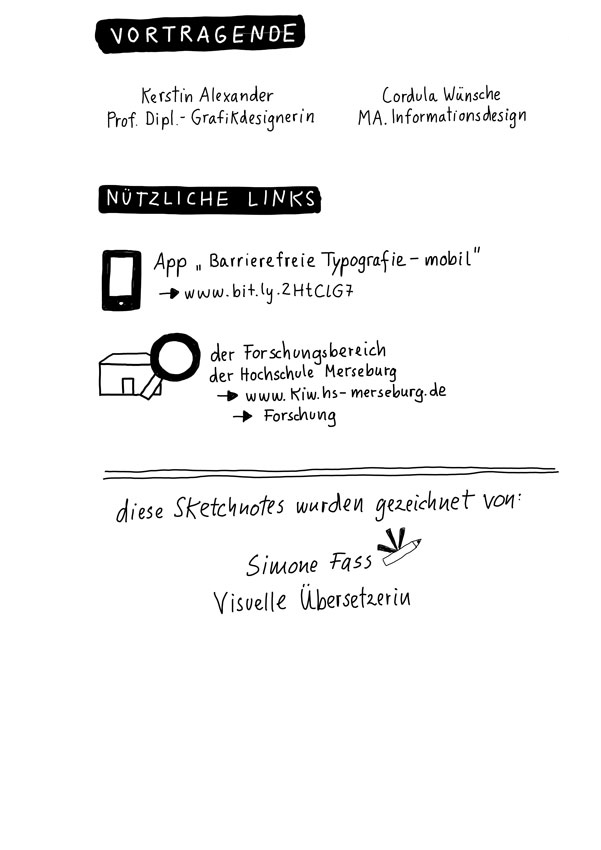 VORTRAGENDE
Kerstin Alexander
Prof. Dipl.- Grafikdesignerin
Cordula Wünsche
MA. Informationsdesign
NÜTZLICHE LINKS
App „ Barrierefreie Typografie - mobil"
→ www.bit.ly.2HtCLG7
der Forschungsbereich
der Hochschule Merseburg
→ www.kiw.hs-merseburg.de
→ Forschung
diese Sketchnotes wurden gezeichnet von:
Simone Fass
Visuelle Übersetzerin